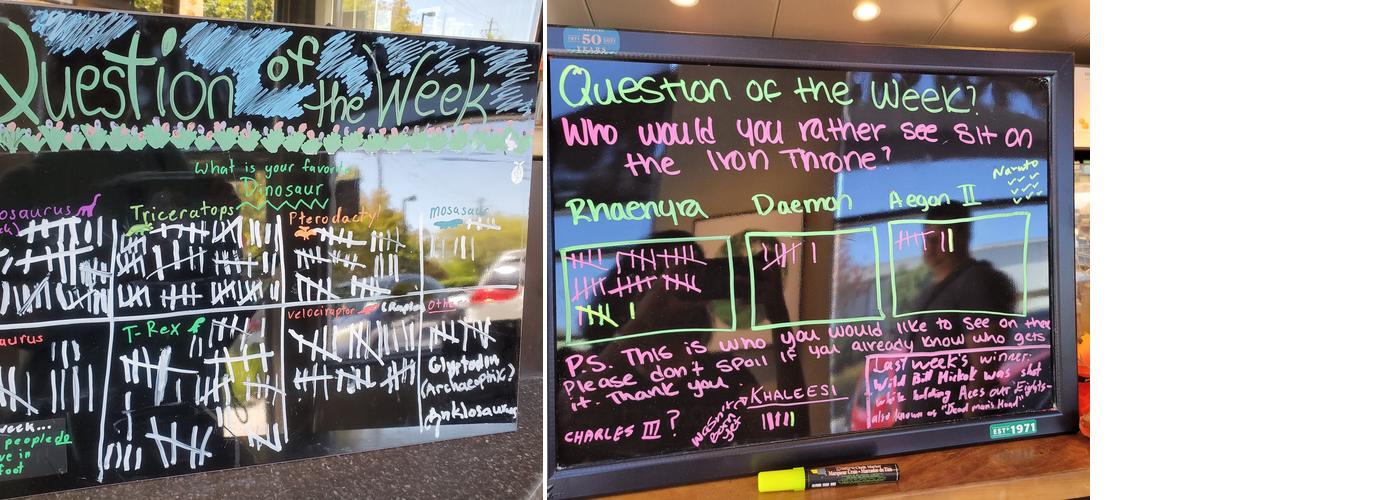 Question of the Week
What is your favorite
Dinosaur
osaurus
Triceratops
Pterodactyl
mosasaur
aurus
T-Rex
Velociraptor
Other
Glyptodon
(Archaeoptrik?)
Anklosaurus
week...
people do
ve in
foot
50
YEARS
Question of the Week?
Who would you rather see sit on
the Iron Throne?
Naruto
Rhaenyra Daemon Aegon II
P.S. This is who you would like to see on there
Please don't spoil if you already know who gets
it. Thank you.
KHALEESI
wasn't
born
yet
CHARLES III?
Last week's winner:
Wild Bill Hickok was shot
while holding Aces over Eights-
also known as "Dead man's Hand".
EST. 1971